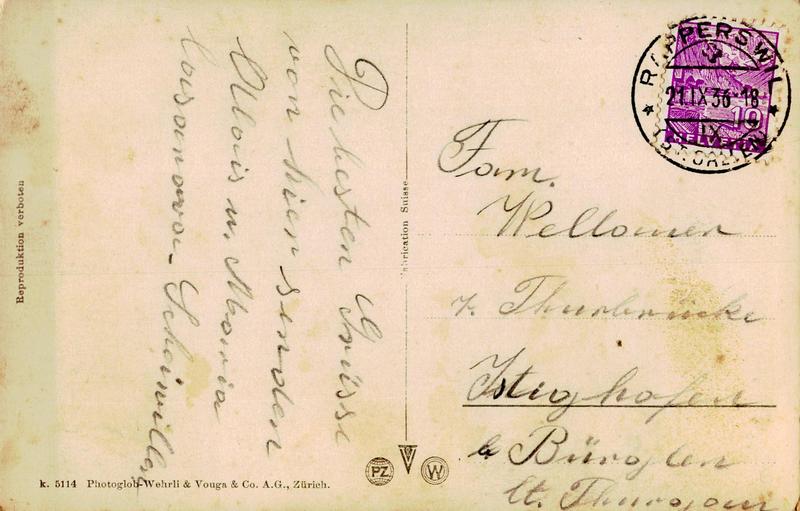 Die besten Grüsse
von hier senden
Alois u. Maria
Fam.
Wellauer
z. Thurbrücke
Istighofen
b. Bürglen
Kt. Thurgau
RAPPERSWIL
21.IX.36-18
IX
(ST. GALLEN)
10
HELVETIA
Reproduktion verboten
Fabrication Suisse
PZ
W
k. 5114 Photoglob-Wehrli & Vouga & Co. A.G., Zürich.